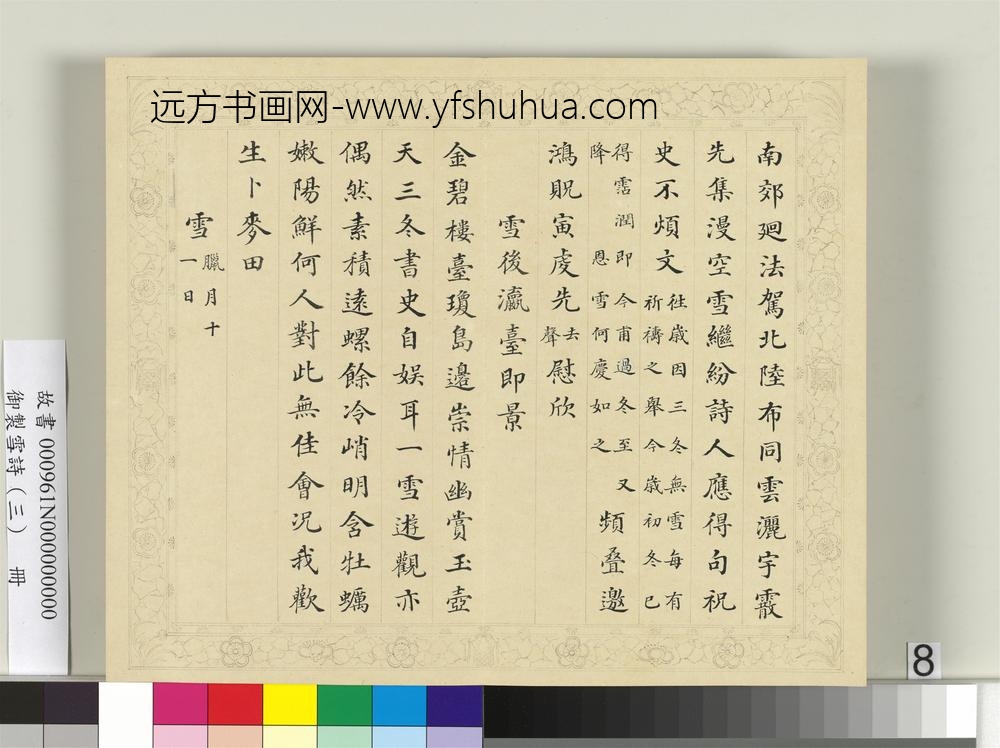 远方书画网-www.yfshuhua.com
南郊廻法駕北陸布同雲灑宇霰
先集漫空雪繼紛詩人應得句祝
史不煩文
往歲因三冬無雪每有
祈禱之舉今歲初冬已
得霑潤即今甫過冬至又
降恩雪何慶如之
頻叠邀
鴻貺寅虔先
去
聲
慰欣
雪後瀛臺即景
金碧樓臺瓊島邊崇情幽賞玉壺
天三冬書史自娱耳一雪遊觀亦
偶然素積遠螺餘冷峭明含牡蠣
嫩陽鮮何人對此無佳會況我歡
生卜麥田
雪
臘月十
一日
故書 000961N000000000
御製雪詩(三) 冊
8